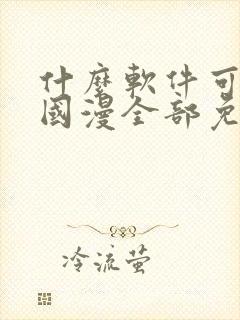 什麼軟件可
國漫全部免
冷流萤